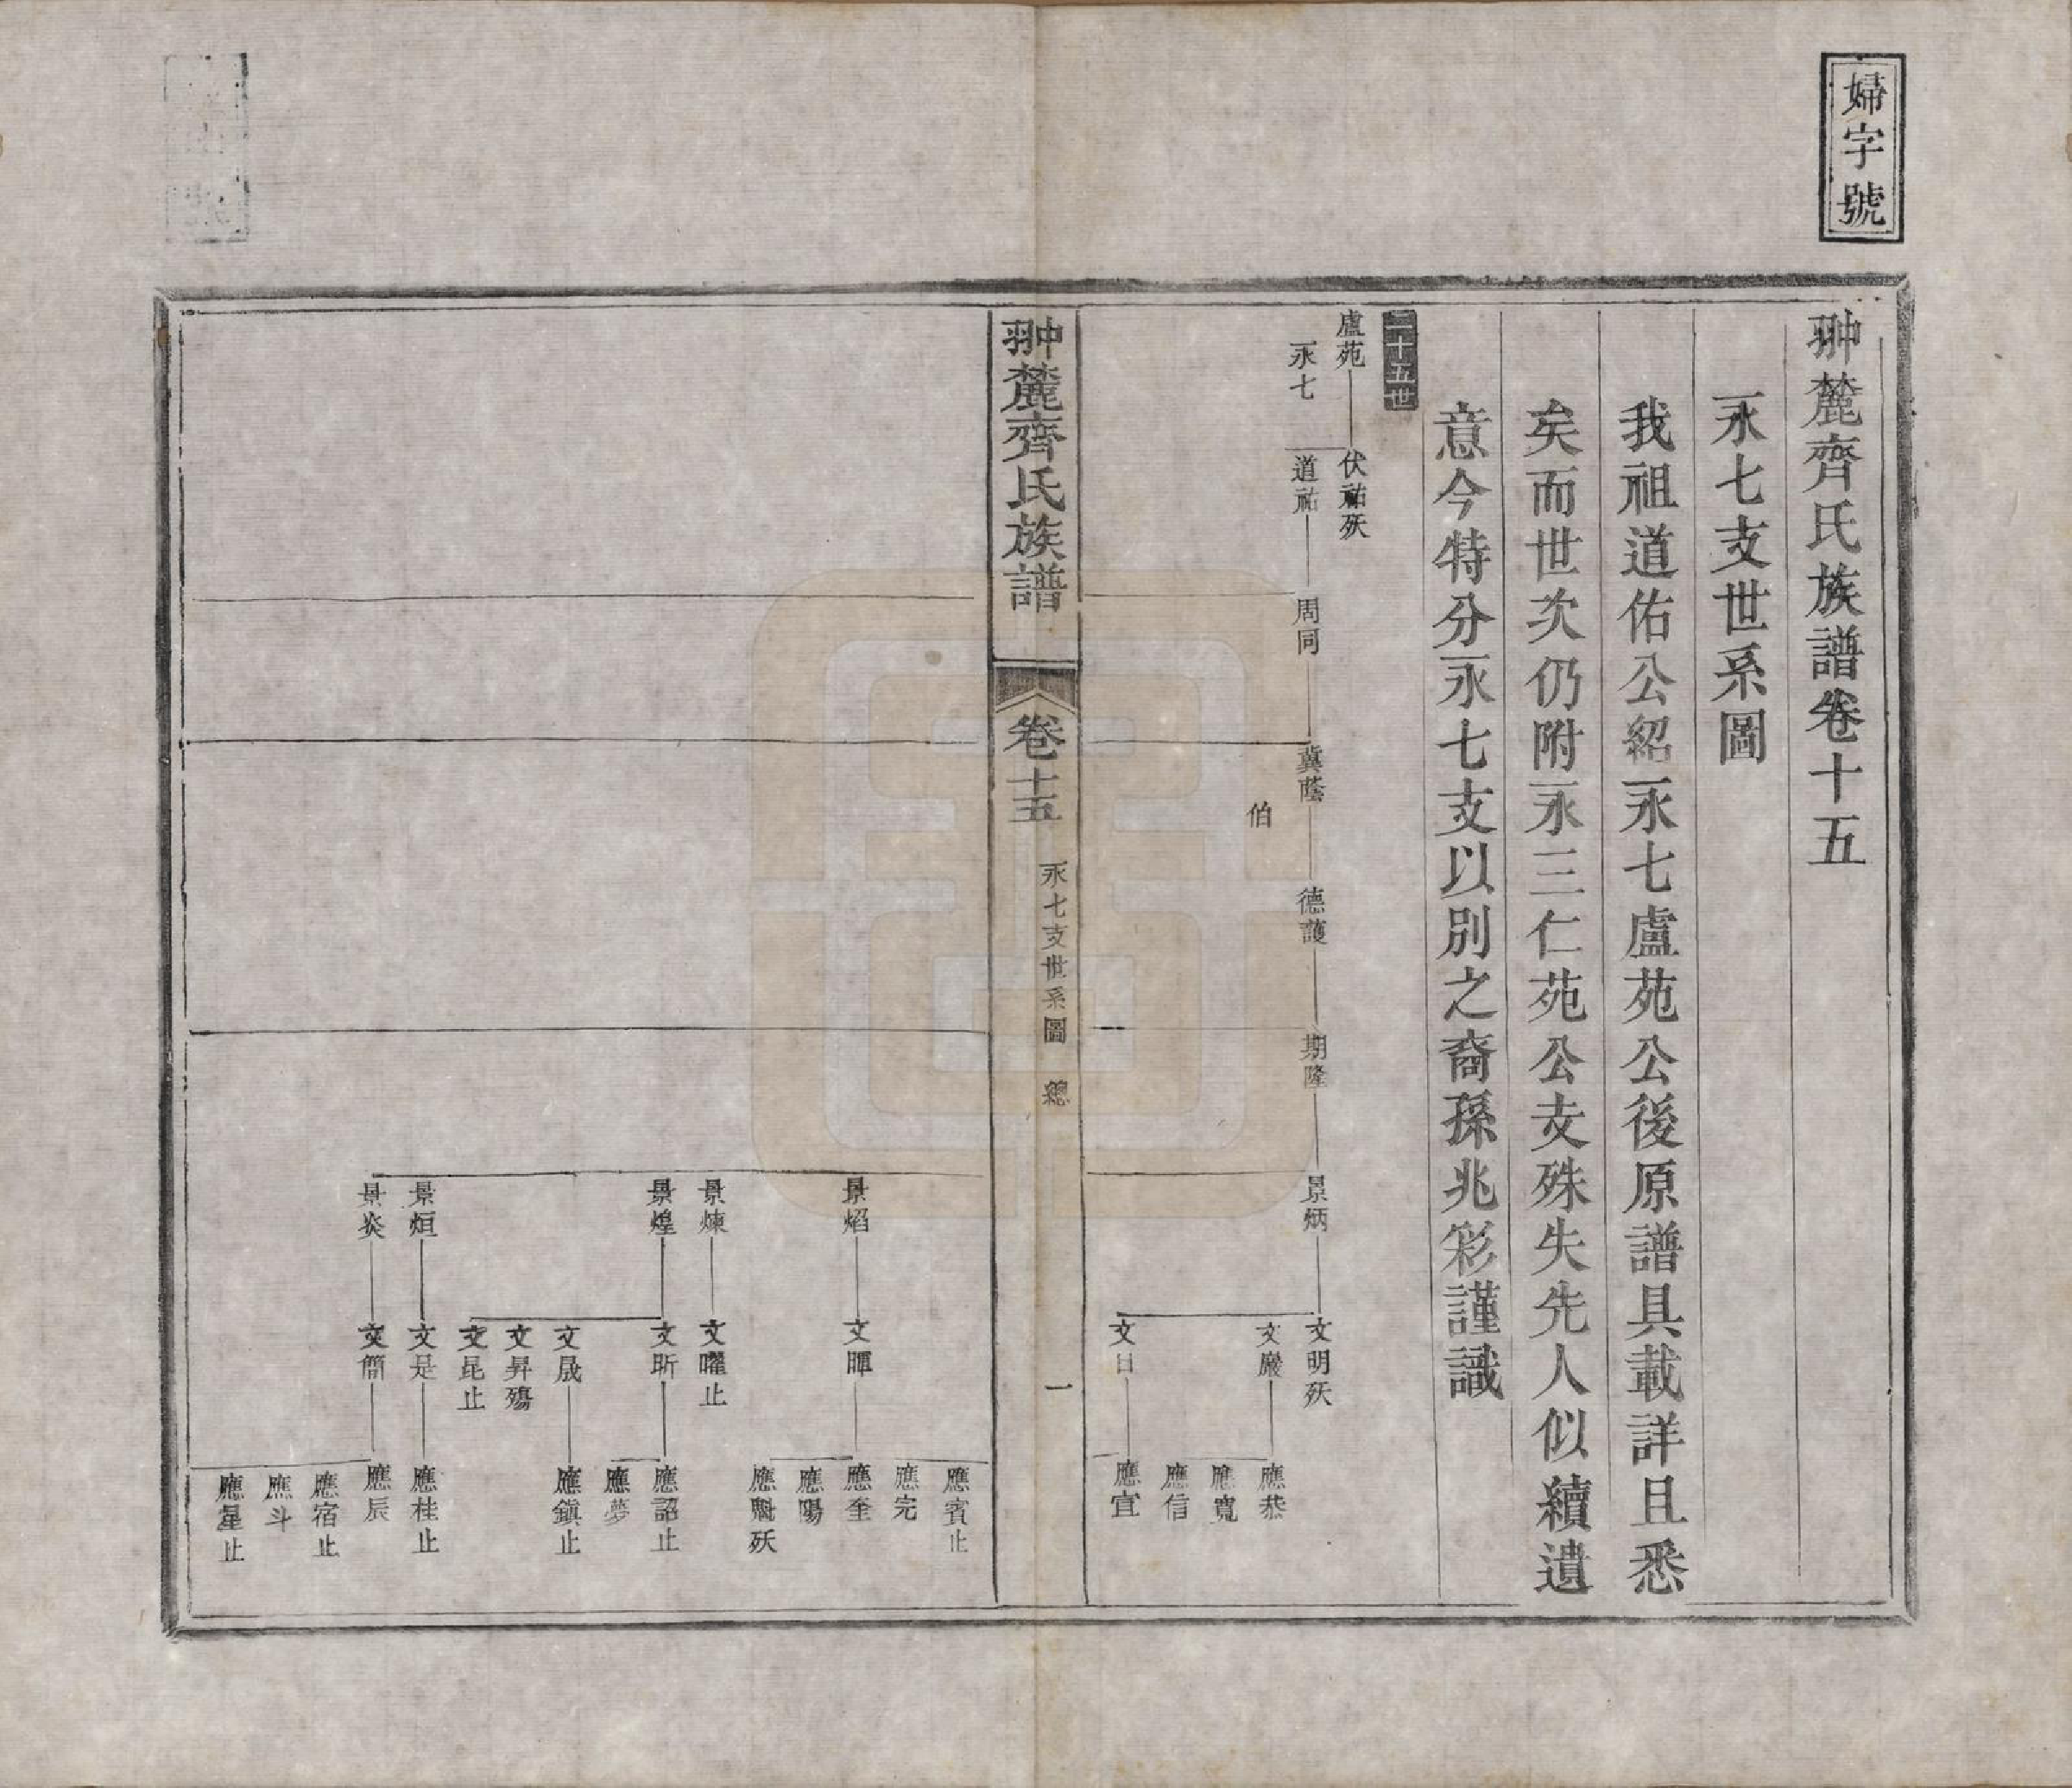 婦字號
翀麓齊氏族譜卷十五
永七支世系圖
我祖道佑公紹永七盧苑公後原譜具載詳且悉
矣而世次仍附永三仁苑公支殊失先人似續遺
意今特分永七支以別之裔孫兆彩謹識
二十五世
盧苑
永七
伏祐殀
道祐
周同
冀蔭
伯
德護
期隆
景炳
文明殀
文巖
文日
應恭
應寬
應信
應宜
翀麓齊氏族譜
卷十五
永七支世系圖 總
一
景焰
景煉
景煌
景烜
景炎
文暉
文曜止
文昕
文晟
文昇殤
文昆止
文是
文簡
應賓止
應完
應奎
應陽
應魁殀
應詔止
應夢
應鎮止
應桂止
應辰
應宿止
應斗
應星止